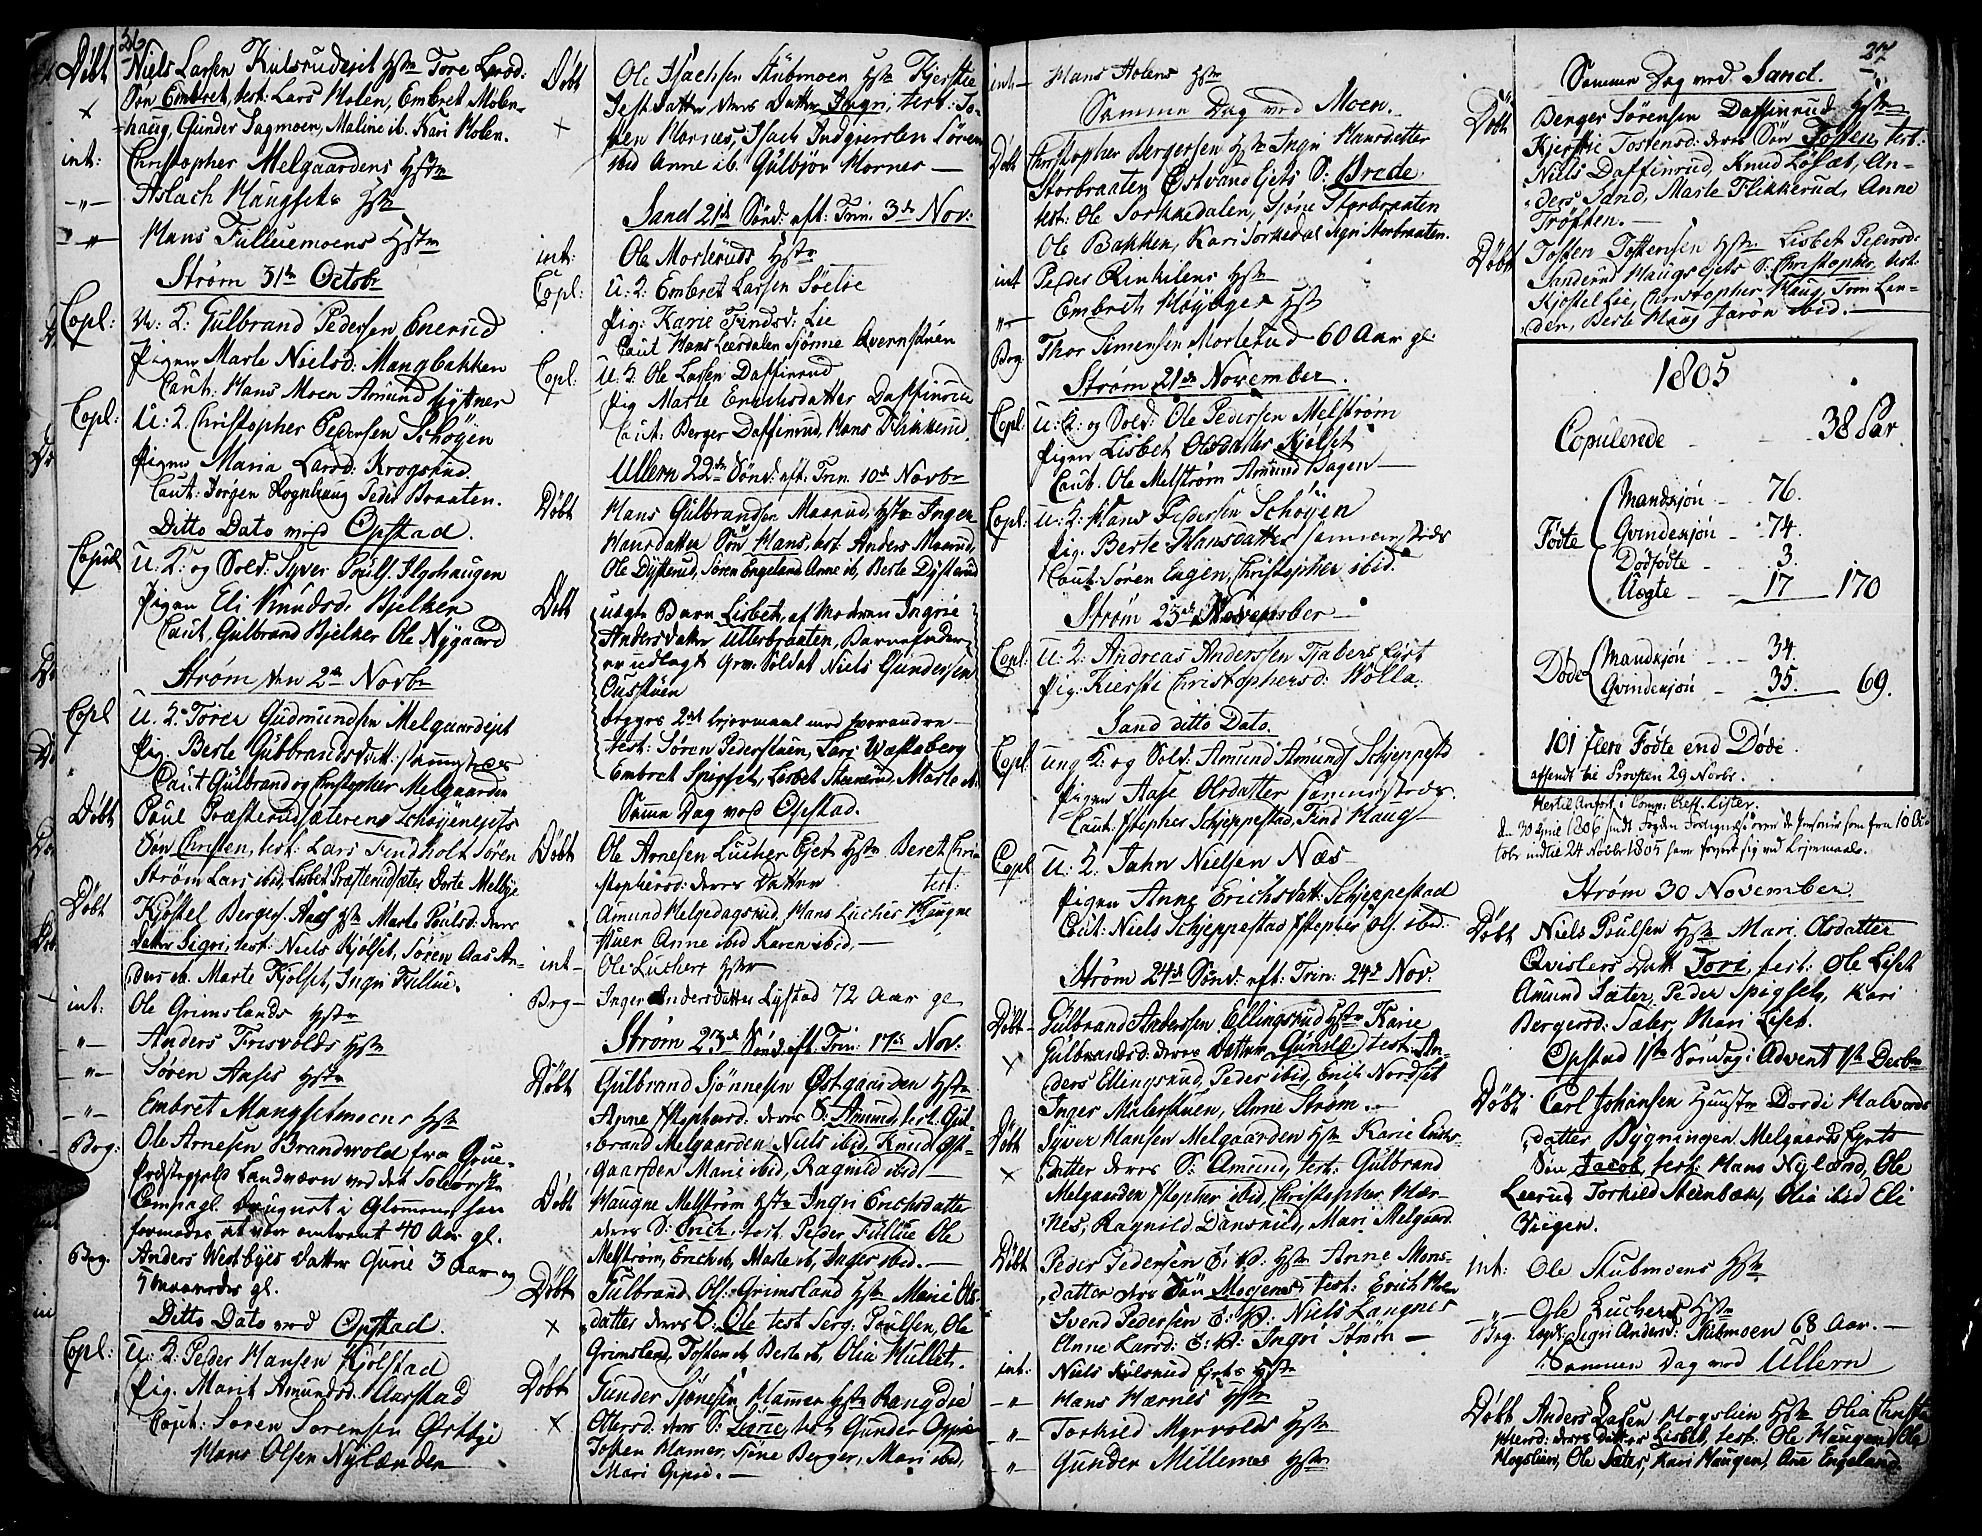 26
Døbt Niels Larsen Kulsrudejet Hstr Tore Larsd:
Søn Embret, test: Lars Molen, Embret Molen-
haug, Gunder Sagmoen, Maline ib. Kari Molen.
int: Christopher Melgaardens Hstr
-"- Aslach Haugsets Hstr
-"- Hans Fulluemoens Hstr
Strøm 31te Octobr
Copl: U: K: Gulbrand Pedersen Enerud
Pigen Marte Nielsd: Mangbakken
Caut: Hans Moen Amund Hyttner
Copl: U: K. Christopher Pedersen Schøyen
Pigen Maria Larsd: Krogstad
Caut: Jørgen Rognhaug Peder Braaten.
Ditto Dato med Opstad.
Copul U: K: og Sold: Syver Pouls.
Pigen Eli Knudsd: Bjelker
Caut, Gulbrand Bjelker Ole Nygaard
Strøm den 2den Novbr
Copl U: K: Torer Gudmundsen Melgaardejet
Pig. Berte Gulbrandsdatt: sammestedes
Caut Gulbrand og Christopher Melgaarden
Døbt Poul Præsterudsæterens Schøyenejets
Søn Christen, test: Lars Findholt Søren
Strøm Lars ibid, Lisbet Præsterudsæter Dorte Melbye
Døbt Kjøstel Bergers. Aas Hstr Marte Poulsd: deres
Datter Sigri, test: Niels Kjølset, Søren Aas An-
ders ib. Marte Kjølset, Ingri Fullue.
int: Ole Grimslands Hstr
-"- Anders Trisvolds Hstr
-"- Søren Aases Hstr
-"- Embret Mangsetmoens Hstr
Beg: Ole Arnesen Brandvold fra Grue-
Præstegjeld Landværn ved det Solørske
Compagl. Druknet i Glomen, han
formodes at være omtrent 40 Aar gl.
Beg. Anders Westbyes Datter Gurie 3 Aar og
5 Maaneder gl.
Ditto Dato ved Opstad.
Copl: U: K: Peder Hansen Kjølstad
Pig. Marit Amundsd. Aarstad
Caut: Søren Sørensen Østbye
Hans Olsen Nylænder
Døbt Ole Isachsen Stubmoen Hstr Kjerstie
Datter deres Datter Ingri, test: To-
sten Hornes, Isach Søren
ibid Anne ib. Gulbjør Hornes
Sand 21de Sønd. eft: Trin. 3de Nov:
int: Ole Morteruds Hstr
Copl: U: K: Embret Larsen Søeløe
Pig: Karie Findsd: Lie
Caut Hans Leerdalen Sjønne
Copl: U: K: Ole Larsen Daffinrud
Pig Marie Erichsdatter Daffinrud
Caut: Berger Daffinrud, Hans Flikkerud.
Ullern 22de Sønd: eft: Trin. 10de Novbr
Døbt Hans Gulbrandsen Maarud, Hstr Inger
Hansdatter Søn Hans, test Anders Maarud,
Ole Dysterud, Søren Engeland Anne ib, Berte Dysterud
Døbt uægte Barn Lisbeth, af Moderen Ingrie
Andersdatter Ullerbraaten, Barnefader
er udlagt Grv. Soldat Niels Gundersen
Ousstuen
begges 2det Leiermaal med hverandre
test: Søren Pederstuen, Lars
Embret Spigset, Lisbet Marte ib.
Samme Dag ved Opstad.
Døbt Ole Arnesen Lucher Ejet Hstr Beret Chri-
stophersd: deres Datter test:
Amund Melgedagsrud, Hans Lucher Haugne
stuen Anne ibid Karen ibid.
int- Ole Luchers Hstr
Beg- Inger Andersdatter Lystad 72 Aar gl
Strøm 23de Sønd. eft. Trin: 17de Nov:
Døbt Gulbrand Sjønnesen Østgaarden Hstr
Anne Stephersd: deres S: Amund, test. Gul-
brand Melgaarden Niels ibid, Knud Øst-
gaarden Marie ibid, Ragnild ibid
Døbt Haugne Melstrøm Hstr Ingri Erichsdatter
deres S: Erich, test. Peder Fullue Ole
Melstrøm, Erich ib, Marte ib, Inger ibid.
Døbt Gulbrand Ols: Grimsland Hstr Marie Ols-
datter deres S. Ole test Serg: Poulsen, Ole
Grimsland, Tosten ib Berte ib, Olia Hullet.
Døbt Gunder Sjønesen Hammer Hstr Rangdie
Ottersd: deres S: test Gunder Oppie
Tosten Hamer, Sjøne Berger, Mari ibid,
Mari Oppid.
27
int- Hans Holens Hstr
Samme Dag ved Moen.
Døbt Christopher Bergersen Hstr Ingri Hansdatter
Storbraaten Østvand Ejets S: Brede.
test: Ole Torkkedalen, Sjøne Storbraaten
Ole Bakken, Kari Torkedal Agn: Storbraaten.
int Peder Rinkilens Hstr
-"- Embret Høybyes Hst
Beg Thor Simensen Morterud 60 Aar gl.
Strøm 21de November.
Copl: U: K: og Sold: Ole Pedersen Melstrøm
Pigen Lisbet Olsdatter Kjølset
Caut. Ole Melstrøm Amund Hagen
Copl: U: K: Hans Pedersen Schøyen
Pig: Berte Hansdatter sammestedes
Caut: Søren Engen, Christopher ibid.
Strøm 23de November
Copl: U: K: Andreas Anderssen Tjaberslust
Pig: Kiersti Christophersd: Holla.
Sand ditto Dato.
Copl. ung K: og Sold: Amund Amunds Schjeppestd
Pigen Aase Olsdatter sammestedes.
Caut: Stepher Schjeppestad, Find Haug
Copl U: K: Jahn Nielsen Næs
Pigen Anne Erichsdatt: Schjeppestad
Caut: Niels Schjeppestad Stepher Ols. ibid:
Strøm 24de Sønd: eft: Trin: 24de Nov:
Døbt- Gulbrand Anderssen Ellingsrud Hstr Karie
Gulbrandsd: deres Datter Gunild test: An-
ders Ellingsrud, Peder ibid, Erik Nordset
Inger Malerstuen, Anne Strøm.
Døbt Syver Hansen Melgaarden Hstr Karie Erichs-
datter deres S: Amund, test: Gulbrand
Melgaarden Stepher ibid, Christopher Hær-
nes, Ragnild Dansrud, Mari Melgaard.
Døbt Peder Pedersen E: W: Hstr Anne Mons-
datter deres Søn Mogens, test: Erich Holen
Svend Pedersen E: W: Niels Langnes
Anne Larsd: E: W: Ingri Strøm
int: Niels Kulsrud Ejets Hstr
-"- Hans Hærnes Hstr
-"- Torkild Myrvolds Hstr
-"- Gunder Millemes Hstr
Samme Dag ved Sand.
Døbt Berger Sørensen Daffinrud Hstr
Kjerstie Tostensd: deres Søn Tosten test:
Niels Daffinrud, Knud Løsæt, An-
ders Sand, Marte Flikkerud, Anne
Trøften.
Døbt Tosten Tostensen Hstr Lisbet Pedersd:
Sanderud Haugsejets S: Christopher, test.
Kjøstel Lie, Christopher Haug, Tron Lun-
den, Berte Haug Jarøn ibid.
1805
Copulerede - - 38 Par.
Fødte Mandkjøn - 76.
Qvindekjøn - 74.
Dødfødte - 3.
Uægte - 17 - 170
Døde Mandkjøn - 34.
Qvindekjøn - 35. 69.
101 flere Fødte end Døde.
afsendt til Provsten 29 Novbr.
Hertil Anført i Comp. Chefs Lister.
d. 30 April 1806 sendt Fogden Fortegnelse over de Personer som fra 10 Oc-
tobr indtil 24 Novbr 1805 have forseet sig ved Lejermaale.
Strøm 30 November.
Døbt Niels Poulsen Hstr Mari Olsdatter
Qvislers Datt Tori, test: Ole Liset
Amund Sæter, Peder Spigset, Kari
Bergersd: Sæter, Mari Liset.
Opstad 1ste Søndag i Advent 1ste Decbr
Døbt Carl Johansen Huustr Dordi Halvords
datter Bygningen Melgaards Eyets
Søn Jacob, test: Hans Nylænd, Ole
Leerud Torkild Steenbæk, Olia ibid Eli
Viigen.
int: Ole Stubmoens Hstr
-"- Ole Luchers Hstr
Beg. Sigri Andersd: Stubmoen 68 Aar.
Sammen Dag ved Ullern
Døbt Anders Larsen Mogstien Hstr Olia Christo
phersd: deres Datter Lisbet, test: Ole Haugen, Ole
Mogstien, Ole Sæter, Kari Haugen, Ane Engeland.